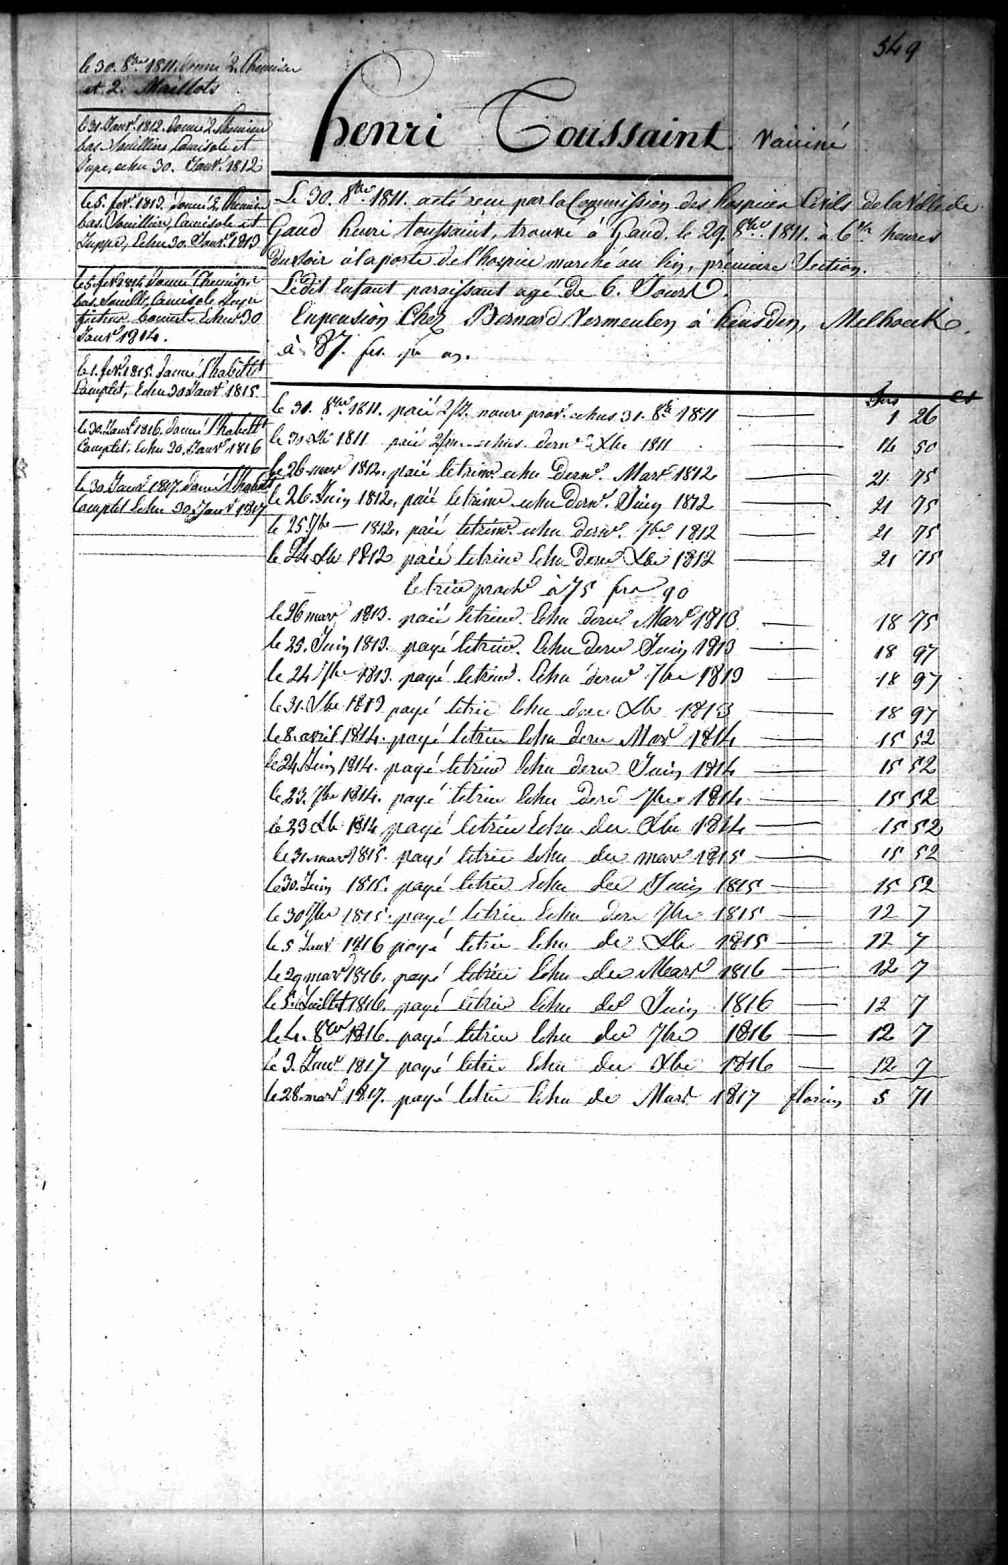 549
le 30. 8bre 1811. donné 2 Chemises
et 2. Maillots
le 31. Janvr. 1812. donné 2 Chemises
bas Souilliers Camisole et
Jupe, echu 30. Janvr. 1812
le 5. fevr. 1813. donné 2 Chemises
bas Souilliers, Camisole et
Juppe, Echu 30. Janvr. 1813
le 5. fevr 1814 donné Chemises
bas Souill. Camisole Jupe
bonnet Echu 30
Janvr. 1814.
le 1. fevr. 1815. donné l'habillt
Complet, Echu 30 Janvr. 1815.
le 30. Janvr. 1816. donné l'habillt
Complet, Echu 30. Janvr. 1816
le 30. Janvr. 1817. donné l'habillt
Complet Echu 30. Janvr. 1817
henri Toussaint. vaiciné
Le 30. 8bre 1811. a eté reçu par la Commission des hospices Civils de la Ville de
Gand henri toussaint, trouvé à Gand. le 29. 8bre 1811. à 6 heures
du soir à la porte de l'hospice marché au lin, premiere Section.
Ledit Enfant paraissant agé de 6. Jours.
En pension Chez Bernard Vermeulen à heusden, Melhoek.
à 87. frs. pr an.
frs cs
le 31. 8bre 1811. paié 2/3. noure prov. echus 31. 8b 1811 — 1 26
le 31 Xb 1811 paié echus dernr Xbe 1811 — 14 50
le 26 mars 1812. paié le trimr. echu dernr. Mars 1812 — 21 75
le 26. Juin 1812. paié le trimr echu dernr. Juin 1812 — 21 75
le 25 7bre — 1812. paié le trimr. echu dernr. 7bre 1812 — 21 75
le 24 Xbe 1812 paié le trimr Echu dernr Xbe 1812 — 21 75
le trim proch à 75 frs 90
le 26 mars 1813. paié le trimr. Echu dernr Mars 1813 — 18 75
le 25. Juin 1813. payé le trimr. Echu dernr Juin 1813 — 18 97
le 24 7bre 1813. payé le trimr. Echu dernr 7bre 1813 — 18 97
le 31. Xbe 1813 payé le trim Echu dern Xbe 1813 — 18 97
le 8. avril 1814. payé le trim Echu dern Mars 1814 — 15 52
le 24 Juin 1814. payé le trim Echu dern Juin 1814 — 15 52
le 23. 7bre 1814. payé le trim Echu dern 7bre 1814 — 15 52
le 23 Xbe 1814 payé le trim Echu der Xbe 1814 — 15 52
le 31. mars 1815. payé le trim Echu der mars 1815 — 15 52
le 30. Juin 1815. payé le trim Echu der Juin 1815 — 15 52
le 30 7bre 1815. payé le trim Echu dern 7bre 1815 — 12 7
le 5 Janvr 1816 payé le trim Echu de Xbe 1815 — 12 7
le 29 mars 1816. payé le trim Echu der Mars 1816 — 12 7
le 5. Juillet 1816. payé le trim Echu der Juin 1816 — 12 7
le 4. 8bre 1816. payé le trim Echu der 7bre 1816 — 12 7
le 3. Janvr 1817 payé le trim Echu der Xbre 1816 — 12 7
le 28. mars 1817. payé le trim Echu de Mars 1817 florins 5 71